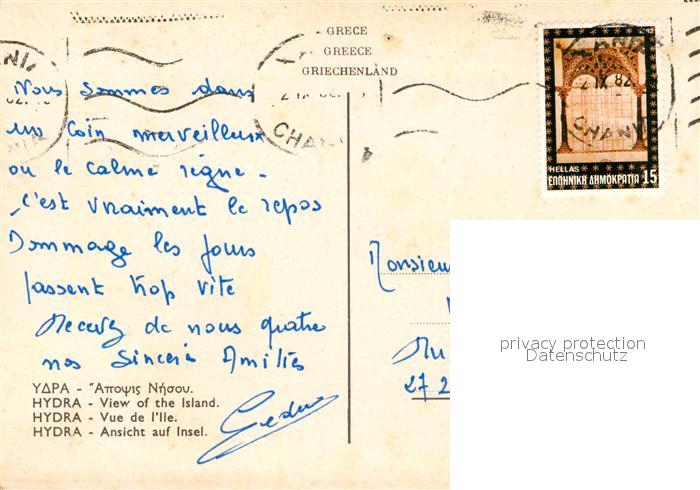 GRECE
GREECE
GRIECHENLAND
Nous sommes dans
un coin merveilleux
ou le calme règne -
c'est vraiment le repos
Dommage les jours
passent trop vite
Recevez de nous quatre
nos sincères Amitiés
ΥΔΡΑ - Ἄποψις Νήσου.
HYDRA - View of the Island.
HYDRA - Vue de l'Ile.
HYDRA - Ansicht auf Insel.
CHANIA
2 IX 82
CHANIA
HELLAS
ΕΛΛΗΝΙΚΗ ΔΗΜΟΚΡΑΤΙΑ 15
Monsieur
27 2
privacy protection
Datenschutz